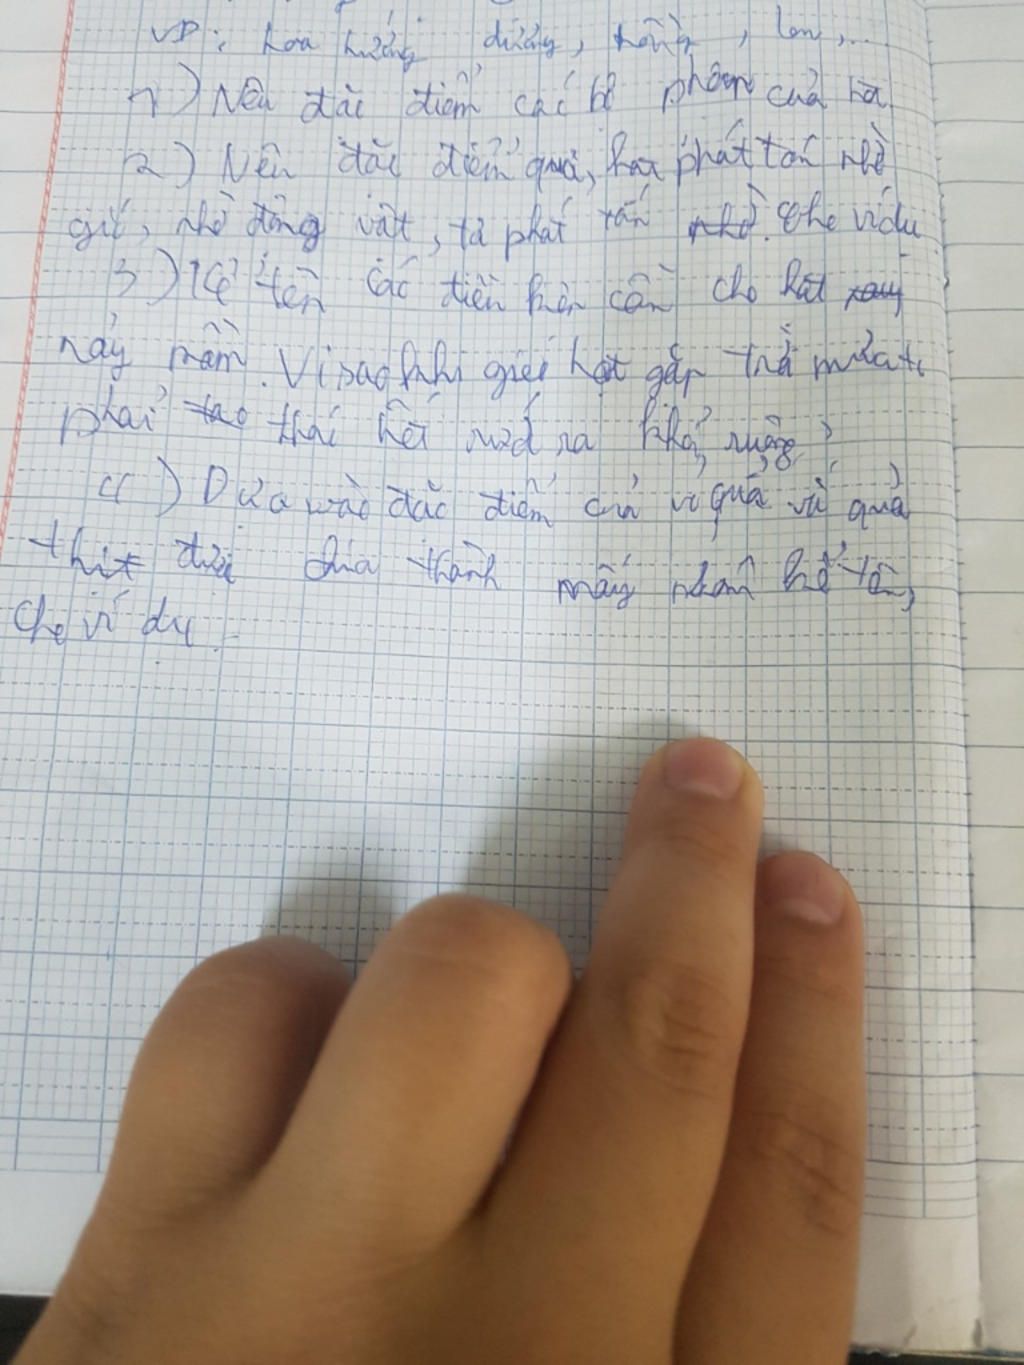 VD: hoa hướng dương, hồng, lan,...
1) Nêu đặc điểm các bộ phận của hoa
2) Nêu đặc điểm quả, hạt phát tán nhờ
gió, nhờ động vật, tự phát tán nhờ. Cho ví dụ
3) Kể tên các điều kiện cần cho hạt
nảy mầm. Vì sao khi gieo hạt gặp trời mưa to
phải tháo hết nước ra khỏi ruộng?
4) Dựa vào đặc điểm của vỏ quả và quả
thịt được chia thành mấy nhóm kể tên,
Cho ví dụ.